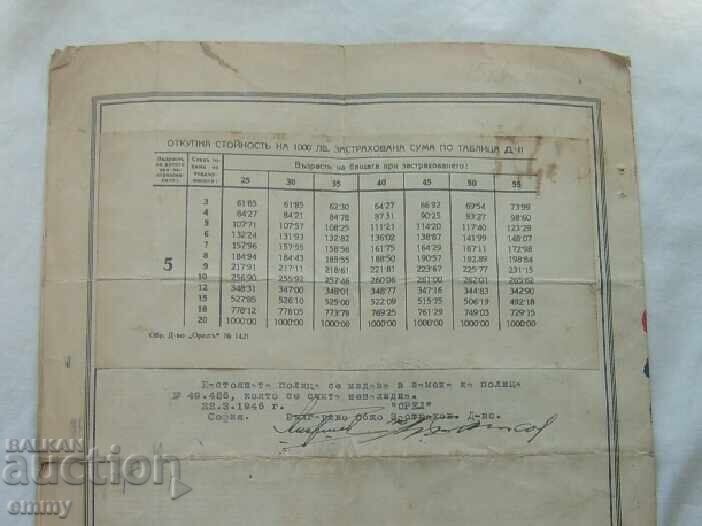 ОТКУПНА СТОЙНОСТЬ НА 1000 ЛВ. ЗАСТРАХОВАНА СУМА ПО ТАБЛИЦА Д-11
Възрасть на бащата при застраховането:
25 30 35 40 45 50 55
3 61·85 61·85 62·30 64·27 66·92 69·54 73·99
4 84·27 84·21 84·78 87·31 90·25 93·71 98·60
5 107·71 107·57 108·25 111·21 114·20 117·80 123·28
6 132·24 131·93 132·82 136·02 138·87 142·99 148·07
7 157·96 157·56 158·56 161·75 164·29 168·09 172·98
8 184·94 184·43 185·55 188·50 190·57 193·99 198·84
5 9 217·91 217·11 218·61 221·81 223·27 225·77 231·15
10 256·90 255·92 257·46 260·96 261·00 262·01 265·62
12 348·31 347·00 348·01 351·17 347·36 344·83 342·90
15 527·86 526·10 525·00 522·09 515·35 506·19 492·18
18 778·12 776·05 773·79 769·25 761·29 749·03 729·35
20 1000·00 1000·00 1000·00 1000·00 1000·00 1000·00 1000·00
Обр. Д-во „Орелъ" № 142
Настоящата полица се издава в замѣна на полица
№ 49.485, която се счита невалидна.
1946 г. "ОРЕЛ"
София. Българско общо Застрахов. Д-во.
БАЛКАН
auction
emmy